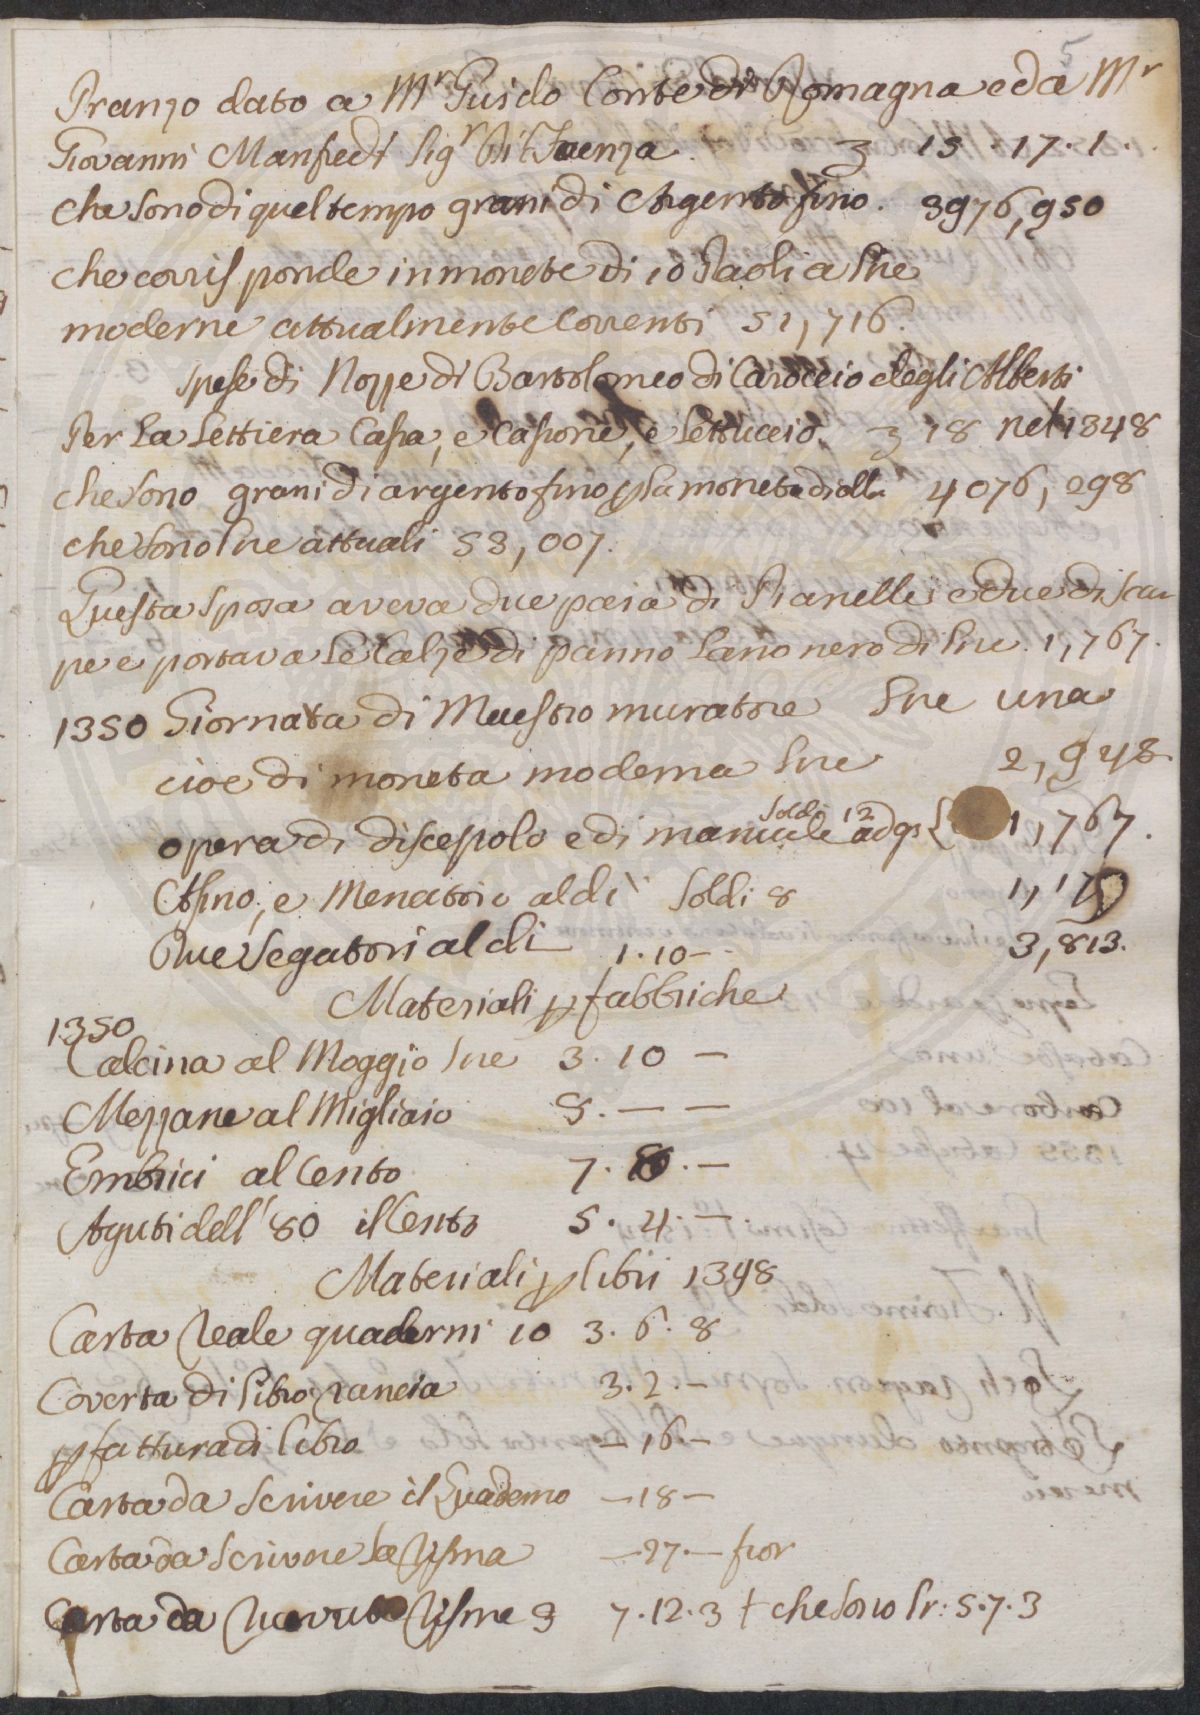 5
Pranzo dato a Mr Guido Conte di Romagna e da Mr
Giovanni Manfredi Sigr di Faenza 15 . 17 . 1 .
che sono di quel tempo grani di Argento fino . 3976,950
che corrisponde in monete di 10 Paoli a lire
moderne attualmente correnti 51,716.
spese di Nozze di Bartolomeo di Caroccio degli Alberti
Per la Lettiera Cassa, e Cassone, e Lettuccio. 18 nel 1348
che sono grani di argento fino p la moneta di alla 4076,298
che sono lire attuali 53,007.
Questa sposa aveva due paia di Pianelle e due di scar
pe e portava le calze di panno lano nero di lire . 1,767.
1350 Giornata di Maestro muratore lire una
cioe di moneta moderna lire 2,948.
soldi 12
opera di discepolo e di manuale ad 1,767.
Asino, e Menatore al dì soldi 8 1,179
Due segatori al dì 1.10 - - 3,813.
Materiali p fabbriche
1350
Calcina al Moggio lire 3 . 10 —
Mezzane al Migliaio 8 . — —
Embrici al Cento 7 . . —
Aguti dell' 80 il Cento 5 . 4 . —
Materiali p libri 1398
Carta Reale quaderni 10 3 . 6 . 8
Coverta di libro rancia 3 . 2 . —
p fattura di libro — 16 —
Carta da scrivere il Quaderno — 18 —
Carta da scrivere la Risma — . 27 . — fior
Carta da Risme 3 7 . 12 . 3 + che sono lr : 5 . 7 . 3